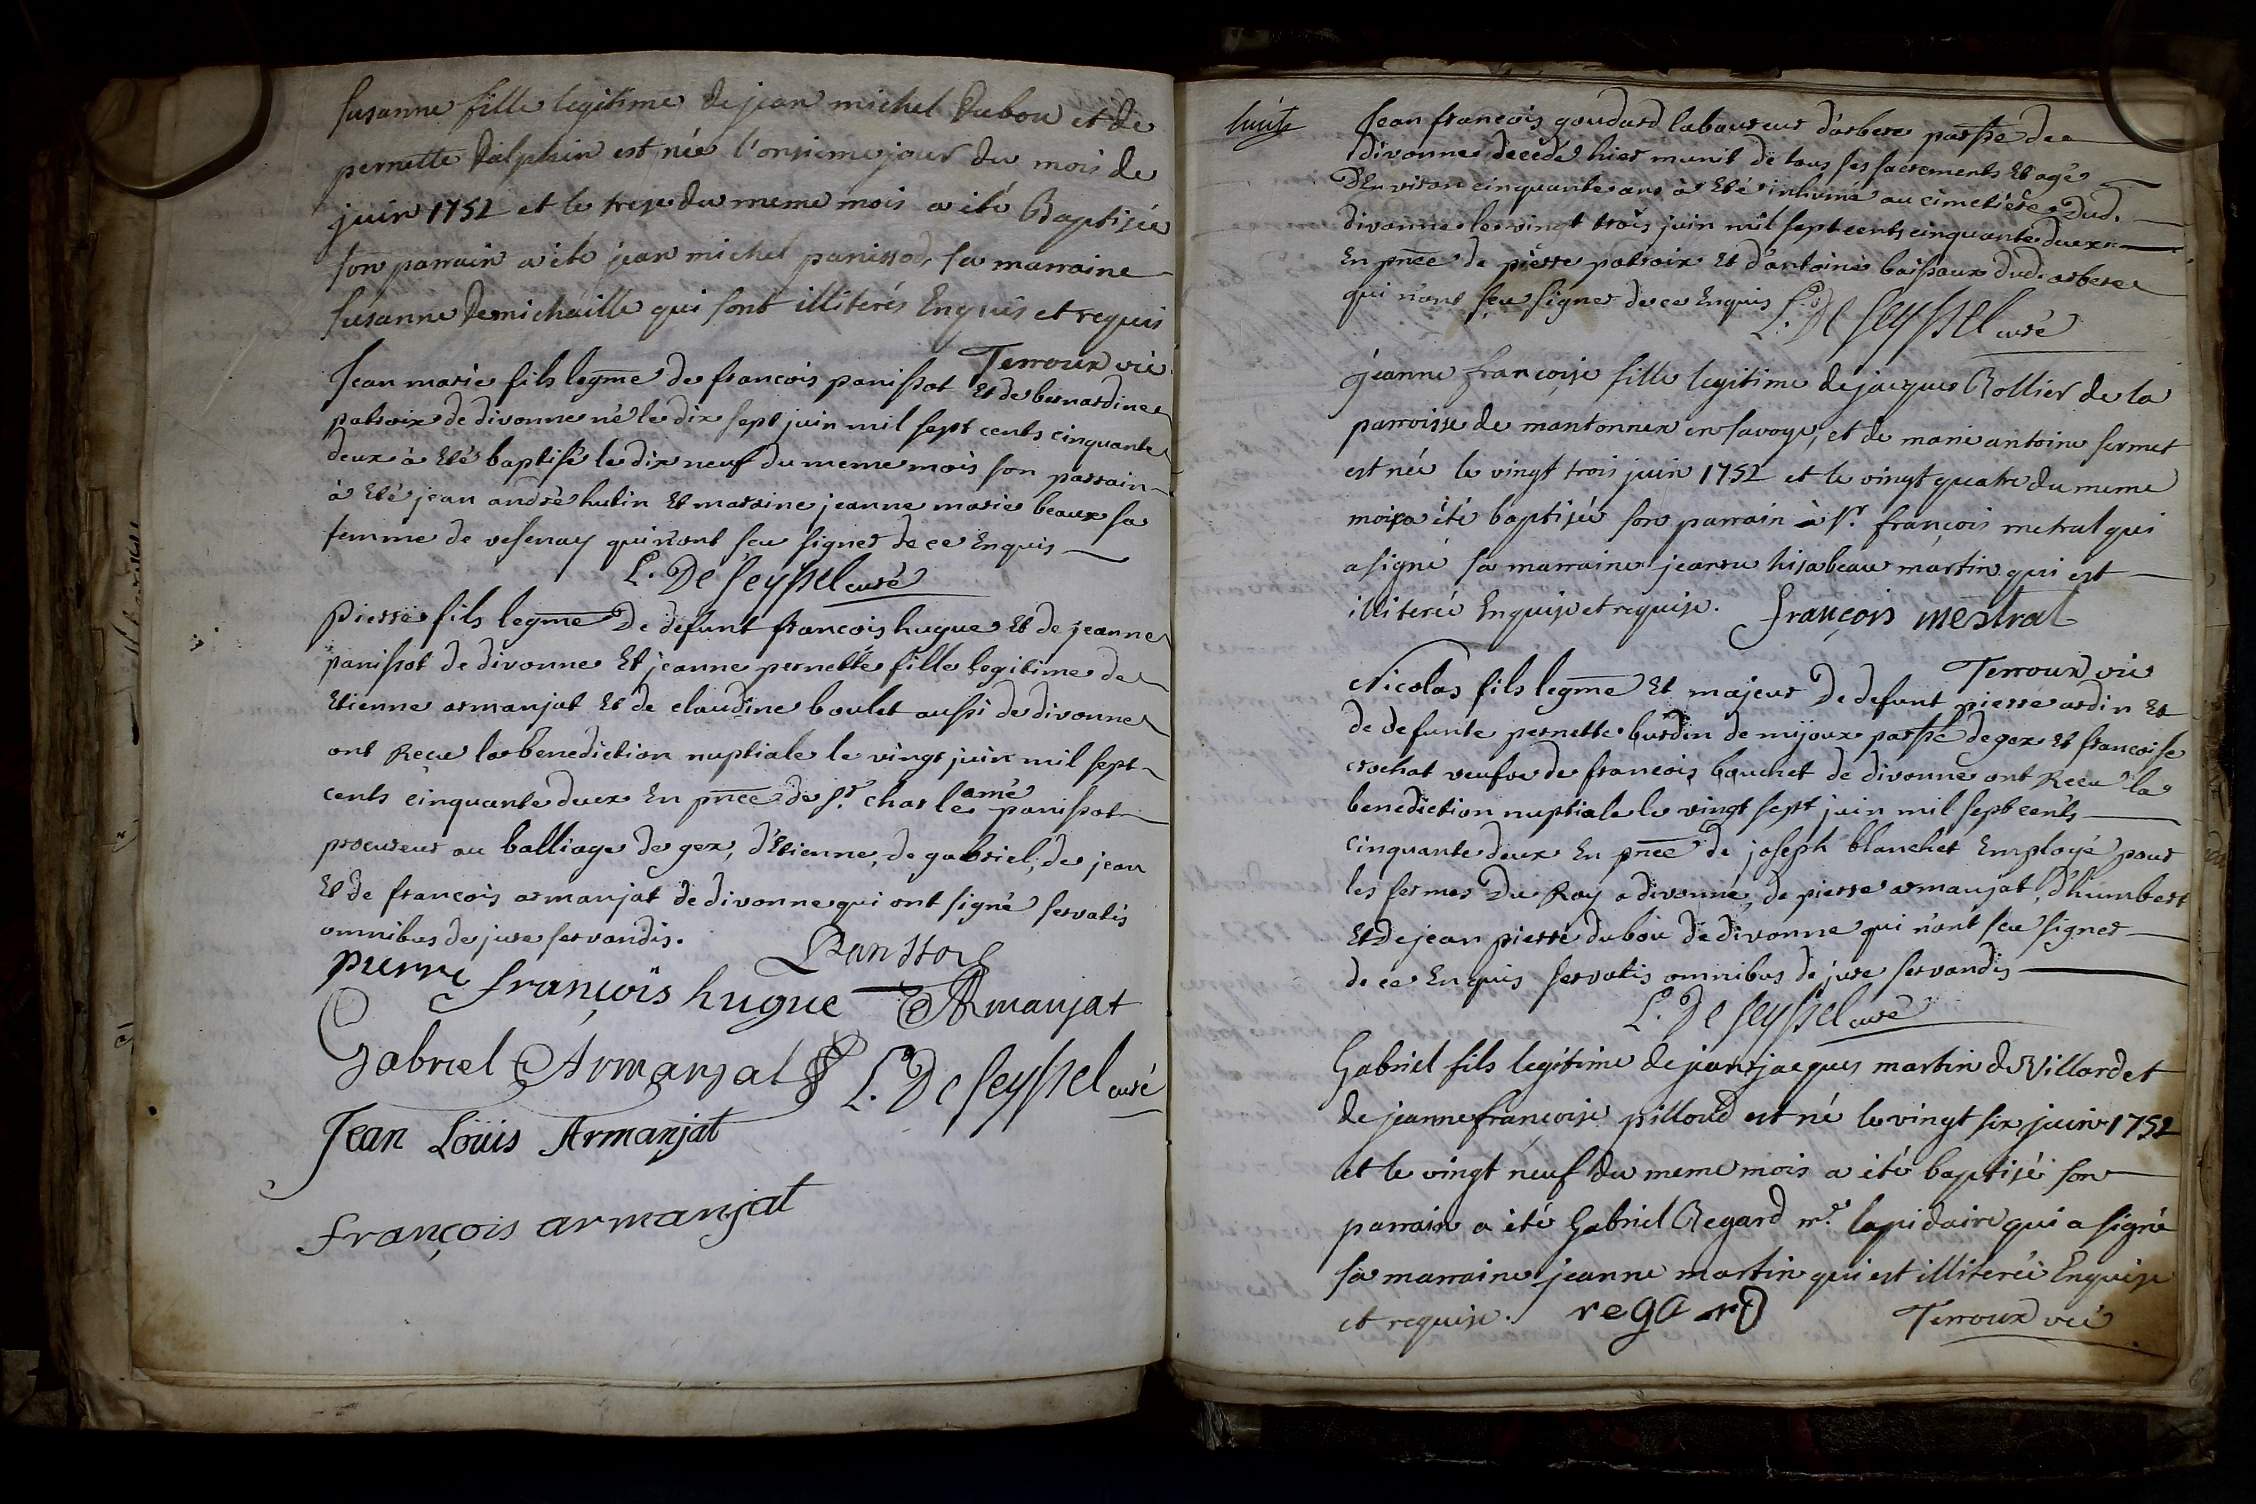 Susanne fille legitime de jean michel Dubou et de
pernette Dalphin est née l'onzieme jour du mois de
juin 1752 et le treze du meme mois a été Baptisée
son parrain a été jean michel panissod, sa marraine
Susanne Demichaille qui sont illiterés Enquis et requis
Terroux vic
Jean marie fils legme de francois panissot Et de bernardine
patroix de divonne né le dix sept juin mil sept cents cinquante
deux à Eté baptisé le dix neuf du meme mois son parrain
à Eté jean andré hutin Et marraine jeanne marie beaux sa
femme de vesenay qui n'ont sceu signer de ce Enquis
L. De Seyssel curé
pierre fils legme De defunt francois hugue Et de jeanne
panissot de divonne Et jeanne pernette fille legitime de
Etienne armanjat Et de claudine boulet aussi de divonne
ont Reçu la benediction nuptiale le vingt juin mil sept
cents cinquante deux En pnce de Sr. charle amé panissot
procureur au balliage de gex, d'Etienne, de gabriel, de jean
Et de francois armanjat de divonne qui ont signé servatis
omnibus de jure servandis.
Panissod
pierre françois hugue
Armanjat
Gabriel Armanjat
L. De Seyssel curé
Jean Loüis Armanjat
françois armanjat
Jean francois goudard laboureur d'arbere parsse de
divonne decedé hier munit de tous ses sacrements Et agé
d'Environ cinquante ans à Eté inhumé au cimetiere dud.
divonne le vingt trois juin mil sept cents cinquante deux
En pnce de pierre patroix Et d'antoine baissaux dud. arbere
qui n'ont sceu signer de ce Enquis
L. De Seyssel curé
jeanne françoise fille legitime de jacques Rollier de la
parroisse de mantonnex en savoye, et de marie antoine fermet
est née le vingt trois juin 1752 et le vingt quatre du meme
mois a été baptisée son parrain à Sr. françois metral qui
a signé sa marraine jeanne hisabeau martin qui est
illiterée Enquise et requise. françois mestral
Terroux vic
Nicolas fils legme Et majeur De defunt pierre ardin Et
de defunte pernette burdin de mijoux parsse de gex Et francoise
crochat veufve de francois bouchet de divonne ont Reçu la
benediction nuptiale le vingt sept juin mil sept cents
cinquante deux En pnce de joseph blanchet Employé pour
les fermes Du Roy a divonne, de pierre armanjat, d'humbert
Et de jean pierre dubou de divonne qui n'ont sceu signer
de ce Enquis servatis omnibus de jure servandis
L. De Seyssel curé
Gabriel fils legitime de jean jacques martin du Villard et
de jeanne françoise pilloud est né le vingt six juin 1752
et le vingt neuf du meme mois a été baptisé son
parrain a été Gabriel Regard me. lapidaire qui a signé
sa marraine jeanne martin qui est illiterée Enquise
et requise. regard
Terroux vic